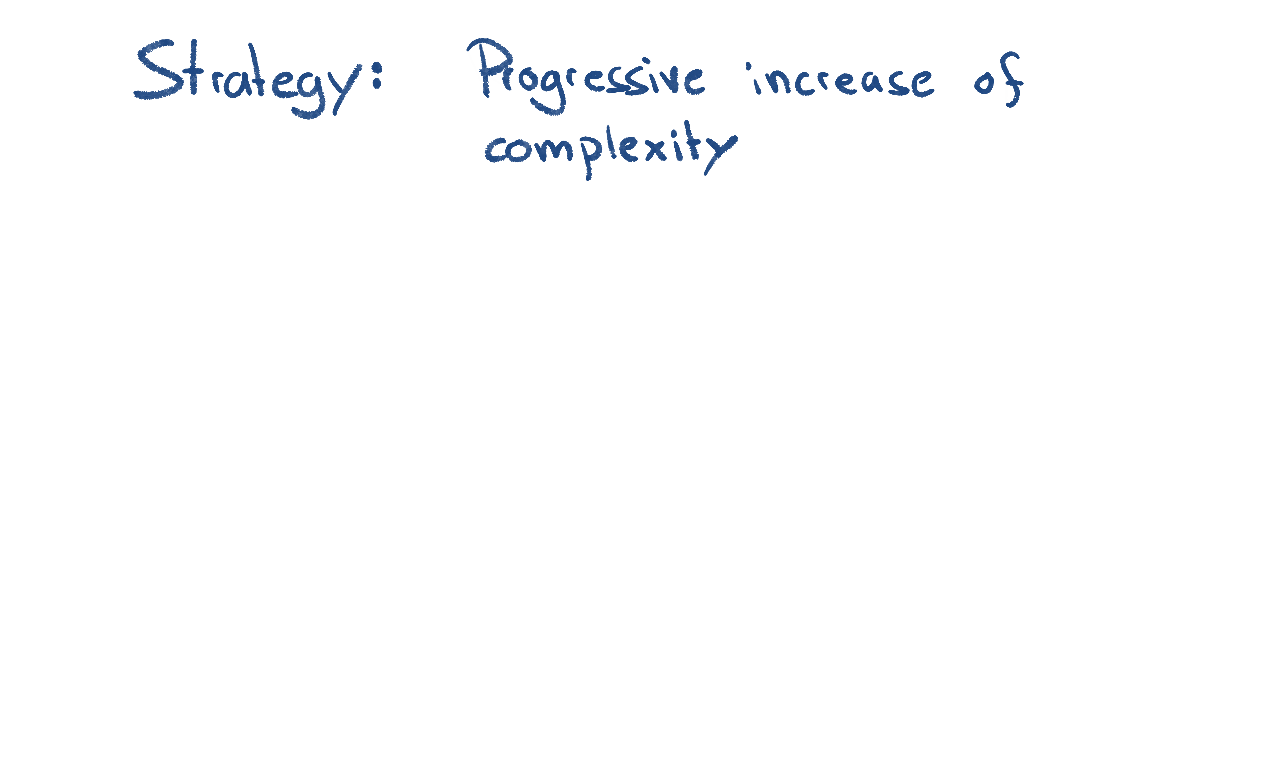 Strategy: Progressive increase of
complexity